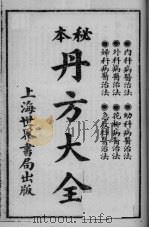 秘本
内科病醫治法
外科病醫治法
婦科病醫治法
幼科病醫治法
花柳病醫治法
醫治法
丹方大全
上海世界書局出版